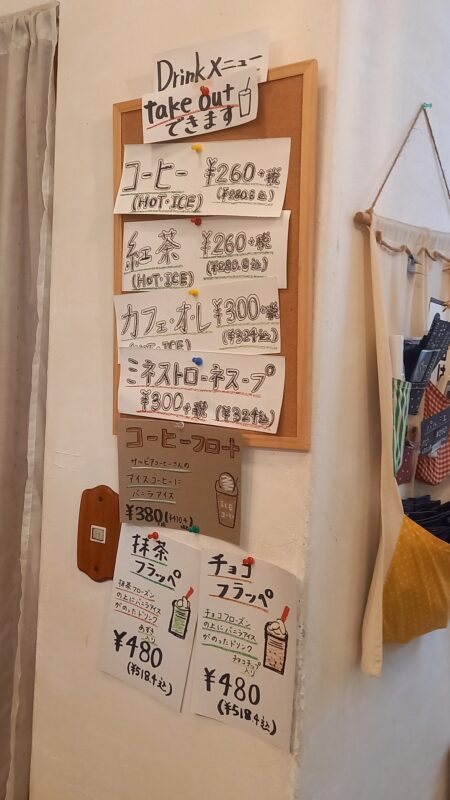 Drinkメニュー
take out
できます
コーヒー ¥260+税
(HOT・ICE) (¥280.8込)
紅茶 ¥260+税
(HOT・ICE) (¥280.8込)
カフェ・オ・レ ¥300+税
(HOT・ICE) (¥324込)
ミネストローネスープ
¥300+税 (¥324込)
コーヒーフロート
サルビアコーヒーさんの
アイスコーヒーに
バニラアイス
¥380
ICE
抹茶
フラッペ
抹茶フローズン
の上にバニラアイス
がのったドリンク
あずき
入り
¥480
(¥518.4込)
チョコ
フラッペ
チョコフローズン
の上にバニラアイス
がのったドリンク
チョコチップ
入り
¥480
(¥518.4込)